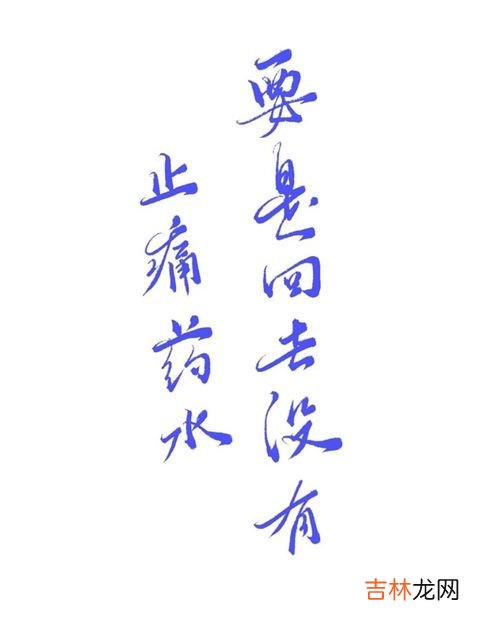 要是回去没有
止痛药水
吉林龙网